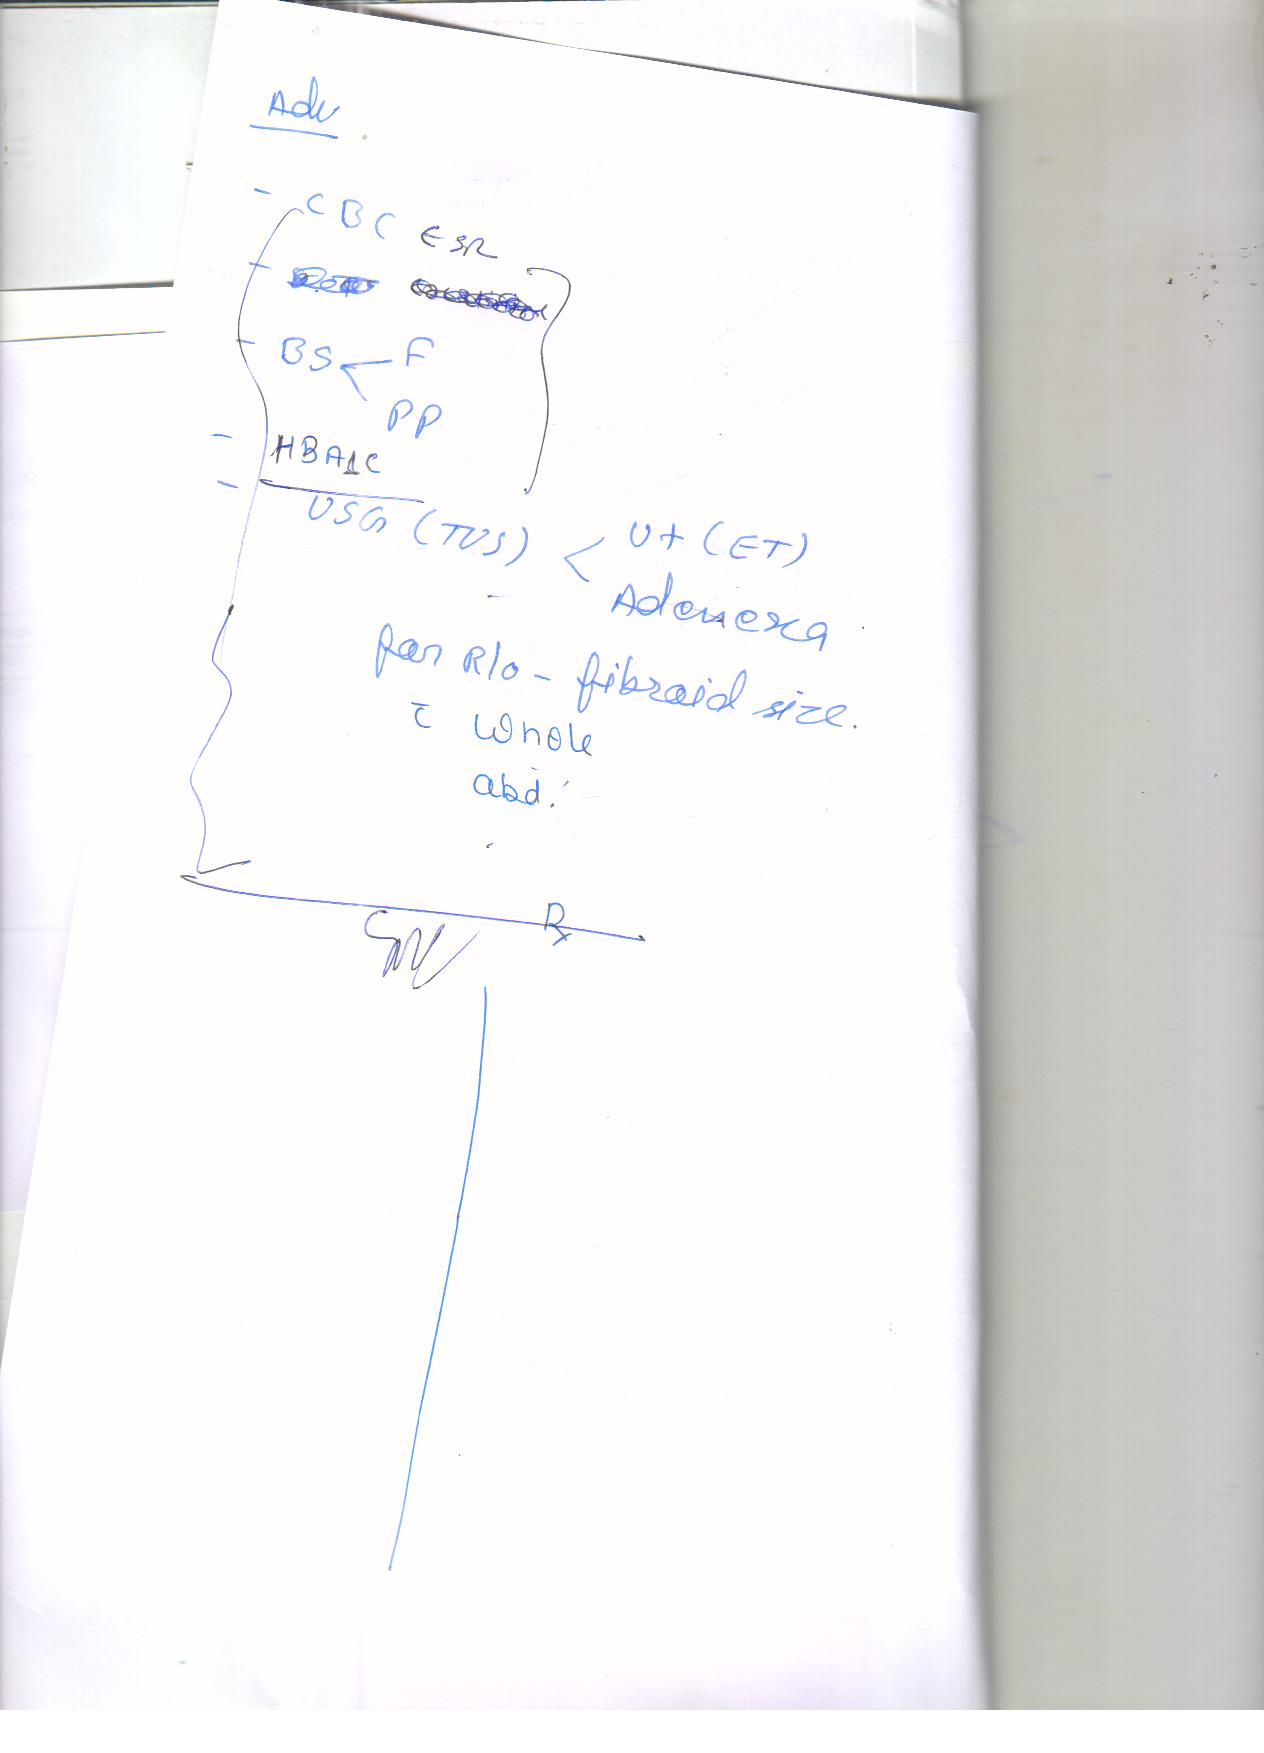 Adv
- CBC ESR
-
- BS < F
PP
- HBA1C
- USG (TVS) < Ut (ET)
Adenexa
for R/o - fibroid size.
c̄ whole
abd.
Rx